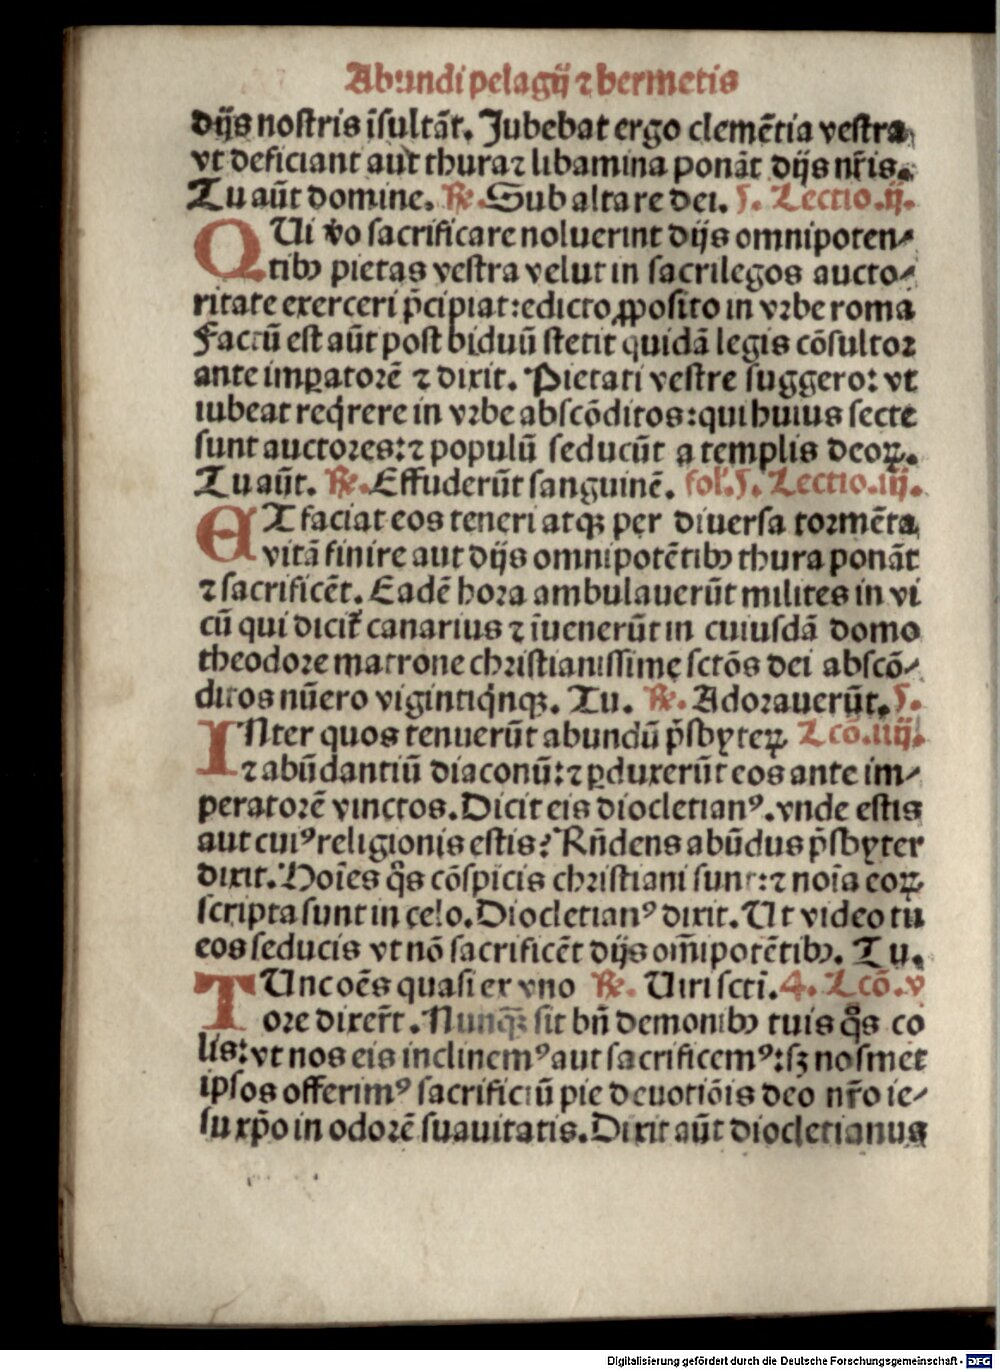 Abundi pelagij ⁊ hermetis
dijs nostris īsultāt. Jubebat ergo clemētia vestra
vt deficiant aut thura⁊ libamina ponāt dijs nr̄is.
Tu aūt domine. ℟. Sub altare dei. ſ. Lectio.ij.
QUi v̄o sacrificare noluerint dijs omnipoten⸗
tibꝫ pietas vestra velut in sacrilegos aucto⸗
ritate exerceri p̄cipiat: edicto ꝓposito in vꝛbe roma
Factū est aūt post biduū stetit quidā legis cōsultoꝛ
ante imꝑatorē ⁊ dixit. Pietati vestre suggero: vt
iubeat reqͥrere in vꝛbe abscōditos: qui huius secte
sunt auctoꝛes: ⁊ populū seducūt a templis deoꝝ.
Tu aūt. ℟. Effuderūt sanguinē. fol. ſ. Lectio.iij.
ET faciat eos teneri atqꝫ per diuersa toꝛmēta
vitā finire aut dijs omnipotētibꝫ thura ponāt
⁊ sacrificēt. Eadē hoꝛa ambulauerūt milites in vi
cū qui dicit̄ canarius ⁊ īuenerūt in cuiusdā domo
theodoꝛe matrone christianissimę sctōs dei abscō⸗
ditos nūero vigintiqͥnqꝫ. Tu. ℟. Adoꝛauerūt. ſ.
INter quos tenuerūt abundū p̄sbyteꝝ Lcō.iiij.
⁊ abūdantiū diaconū: ⁊ ꝑduxerūt eos ante im⸗
peratoꝛē vinctos. Dicit eis diocletianꝰ. vnde estis
aut cuiꝰ religionis estis? Rn̄dens abūdus p̄sbyter
dixit. Hoīes q̄s cōspicis christiani sunt: ⁊ noīa eoꝝ
scripta sunt in cęlo. Diocletianꝰ dixit. Ut video tu
eos seducis vt nō sacrificēt dijs om̄ipotētibꝫ. Tu.
TUnc oēs quasi ex vno ℟. Uiri sctī. 4. Lcō.v
oꝛe dixer̄t. Nunqꝫ̄ sit bn̄ demonibꝫ tuis q̄s co
lis: vt nos eis inclinemꝰ aut sacrificemꝰ: sꝫ nosmet
ipsos offerimꝰ sacrificiū pie deuotiōis deo nr̄o ie⸗
su xp̄o in odoꝛē suauitatis. Dixit aūt diocletianus
Digitalisierung gefördert durch die Deutsche Forschungsgemeinschaft - DFG